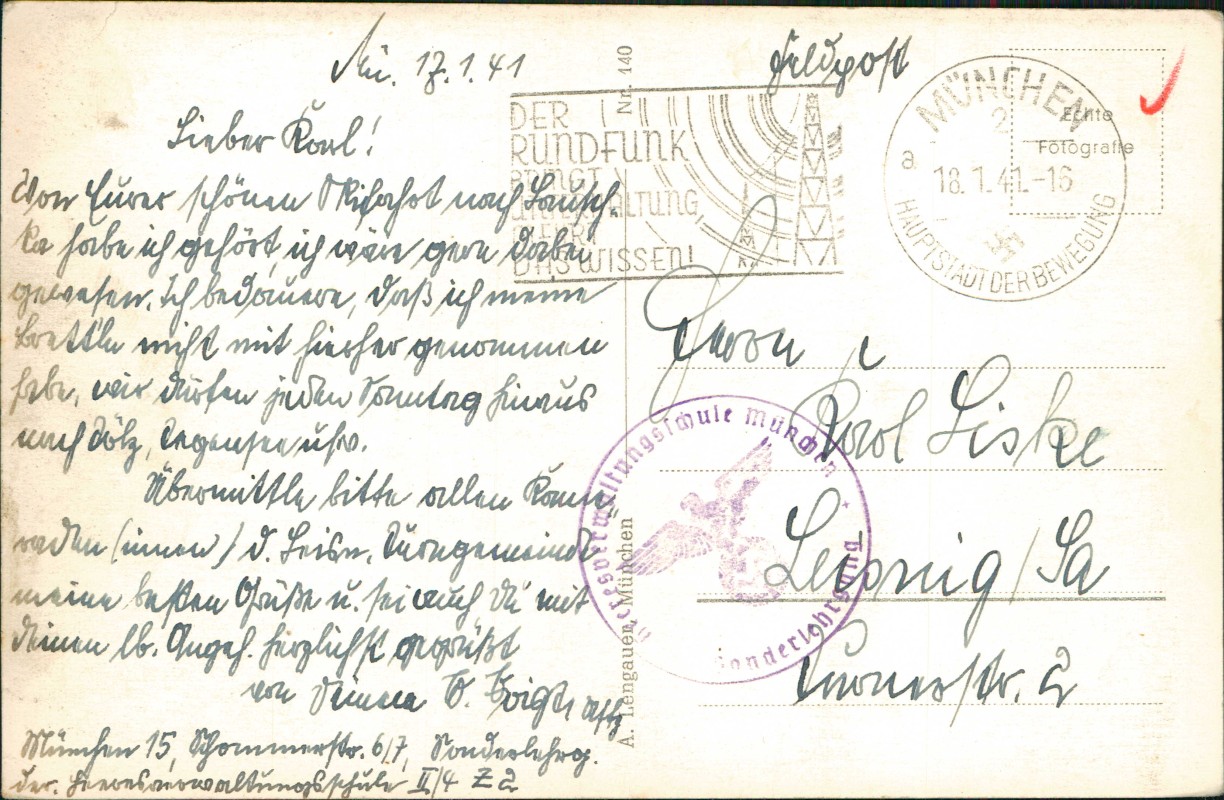 Mü. 17.1.41
Lieber Karl!
Von Eurer schönen Skifahrt nach Lausch-
ka habe ich gehört, ich wäre gern dabei
gewesen. Ich bedauere, daß ich meine
Brett'ln nicht mit hierher genommen
habe, wir dürfen jeden Sonntag hinaus
nach Tölz, Tegernsee usw.
Übermittle bitte allen Kame-
raden (innen) d. Leisn. Turngemeinde
meine besten Grüße u. sei auch Du mit
Deinen lb. Angeh. herzlichst gegrüßt
von Deinem O. Voigt,
München 15, Schommerstr. 6/7, Sonderlehrg.
der Heeresverwaltungsschule II/4 Z 2
Nr. 140
A. Lengauer, München
Feldpost
DER
RUNDFUNK
BRINGT
UNTERHALTUNG,
MEHRT
DAS WISSEN!
MÜNCHEN
2
a
18.1.41.-16
HAUPTSTADT DER BEWEGUNG
Echte
Fotografie
Herrn
Karl Liske
Leisnig/Sa
Turnerstr. 2
Heeresverwaltungsschule München
Sonderlehrgang